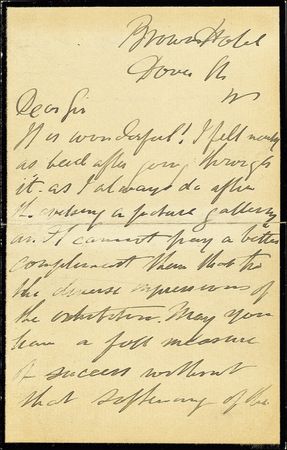 Browns Hotel
Dover St
W
Dear Sir
It is wonderful! I felt nearly
as bad after going through
it as I always do after
a picture gallery
and I cannot pay a better
compliment than that to
the diverse impressions of
the exhibition. May you
have a full measure
of success without
that softening of the